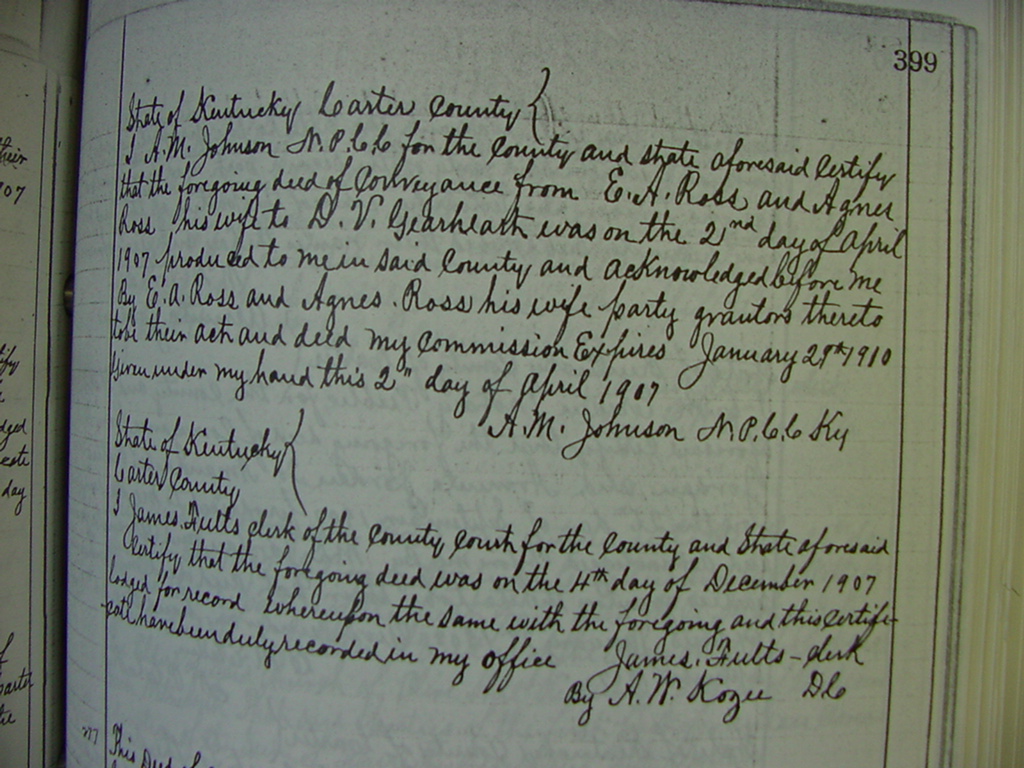 399
State of Kentucky Carter County
I A.M. Johnson N.P.C.C for the County and State aforesaid Certify
that the foregoing deed of Conveyance from E.A. Ross and Agnes
Ross his wife to D.V. Gearheart was on the 2nd day of April
1907 produced to me in said County and acknowledged before me
By E.A. Ross and Agnes. Ross his wife party grantors thereto
to be their act and deed my Commission Expires January 29th 1910
Given under my hand this 2" day of April 1907
A.M. Johnson N.P.C.C Ky
State of Kentucky
Carter County
I James. Fults Clerk of the County Court for the County and State aforesaid
Certify that the foregoing deed was on the 4th day of December 1907
lodged for record Whereupon the same with the foregoing and this Certifi-
cate have been duly recorded in my office James. Fults - Clerk
By A.W. Kozee D.C
This Deed of
their
07
day